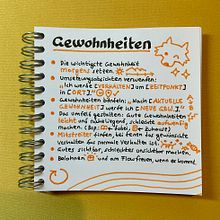 Gewohnheiten
Die wichtigste Gewohnheit
morgens setzen
Umsetzungsabsichten verwenden:
"Ich werde [VERHALTEN] um [ZEITPUNKT]
in [ORT]."
Gewohnheiten bündeln: "Nach [AKTUELLE
GEWOHNHEIT] werde ich [NEUE GEW.]."
Das Umfeld gestalten: Gute Gewohnheiten
leicht und naheliegend, schlechte aufwendig
machen. (Bsp.: Zuhause)
Mitstreiter finden, bei denen das gewünschte
Verhalten das normale Verhalten ist.
Gutes sichtbar, schlechtes unsichtbar machen.
Belohnen und am Flow freuen, wenn er kommt